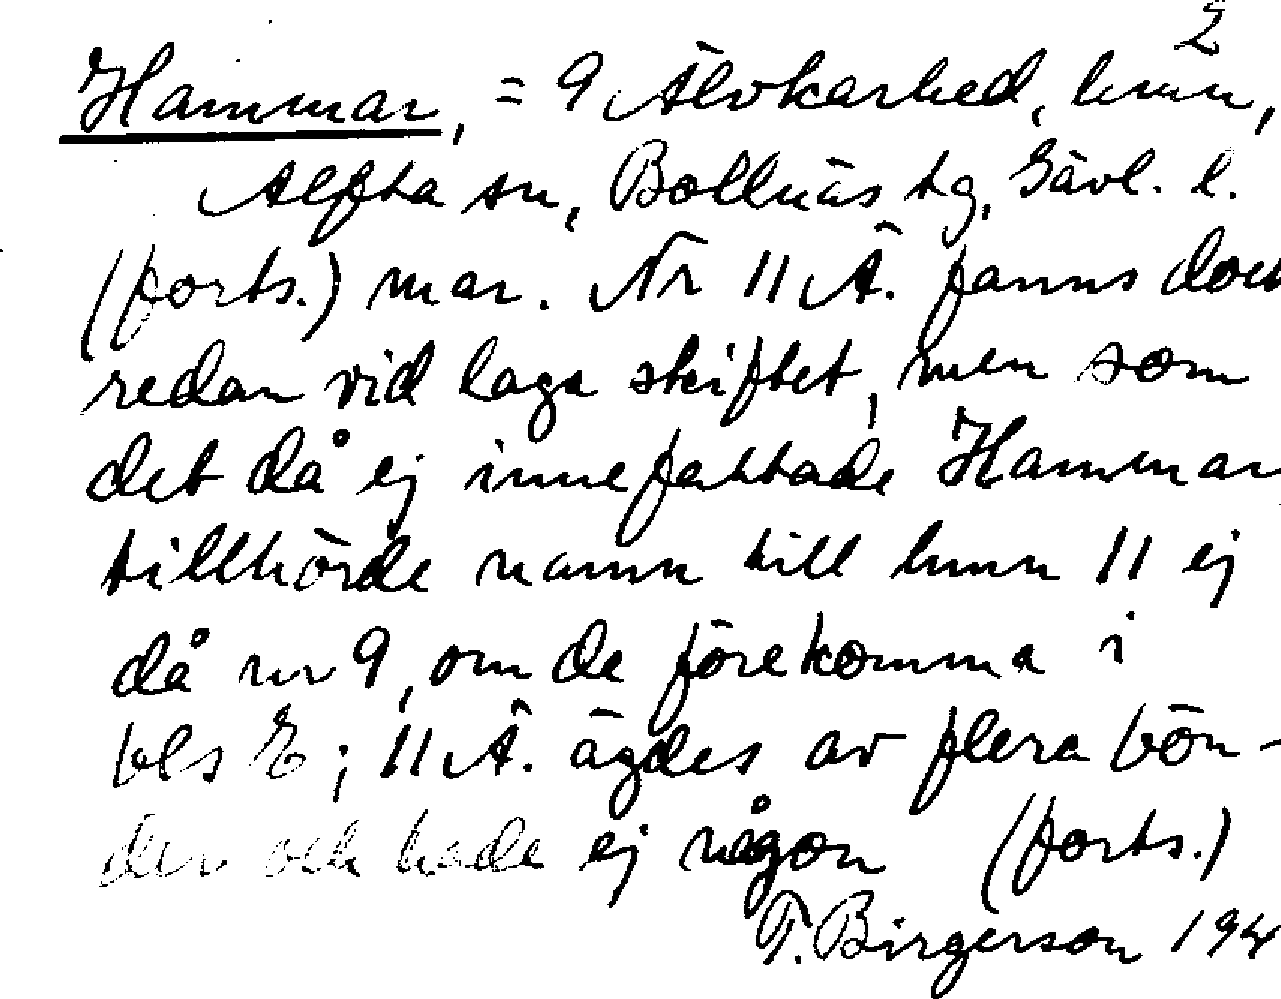 2
Hammar, = 9 Älvkarhed, hmn,
Alfta sn, Bollnäs tg, Gävl. l.
(forts.) mar. Nr 11 Ä. fanns doc
redan vid laga skiftet, men som
det då ej innefattade Hammar
tillhörde namn till hmn 11 ej
då nr 9, om de förekomma i
bls E; 11 Ä. ägdes av flera bön-
der och hade ej någon (forts.)
T. Birgerson 194